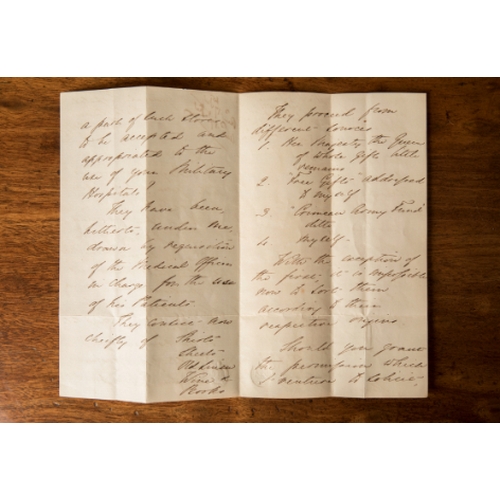 a part of such Stores
to be accepted and
appropriated to the
use of your Military
Hospitals!
They have been,
hitherto, under me,
drawn by requisition
of the Medical Officer
in Charge for the use
of his Patients.
They consist now
chiefly of Shirts
Sheets
Old Linen
Wine &
Books
They proceed from
different sources
1. Her Majesty the Queen
of whose Gifts still
remains
2. "Free Gifts" addressed
to myself
3. "Crimean Army Fund"
ditto
4. Myself -
With the exception of
the first, it is impossible
now to sort them
according to their
respective origins
Should you grant
the permission which
I venture to solicit,